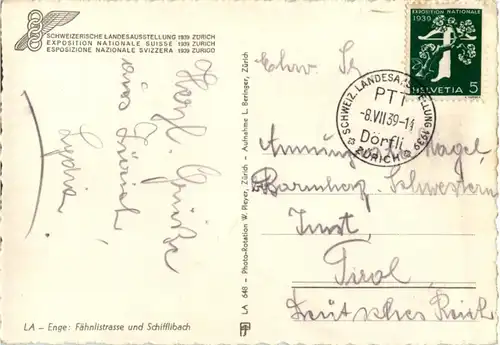 SCHWEIZERISCHE LANDESAUSSTELLUNG 1939 ZÜRICH
EXPOSITION NATIONALE SUISSE 1939 ZURICH
ESPOSIZIONE NAZIONALE SVIZZERA 1939 ZURIGO
Herzl. Grüße
aus Zürich
Lydia
LA – Enge: Fähnlistrasse und Schifflibach
LA 648 - Photo-Rotation W. Pleyer, Zürich - Aufnahme L. Beringer, Zürich
EXPOSITION NATIONALE
1939
HELVETIA 5
SCHWEIZ. LANDESAUSSTELLUNG 1939
PTT
-8.VII.39-11
Dörfli
ZÜRICH
Ehrw. Sr.
Nagel
Barmherz. Schwestern
Imst,
Tirol,
Deutsches Reich